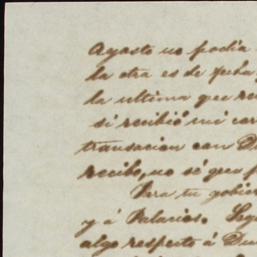 Agosto no podia
la otra es de fecha
la ultima que re
si recibió mi car
transacion con D
recibo, no sé que p
Para tu gobie
y á Palacios. Seg
algo respecto á Du